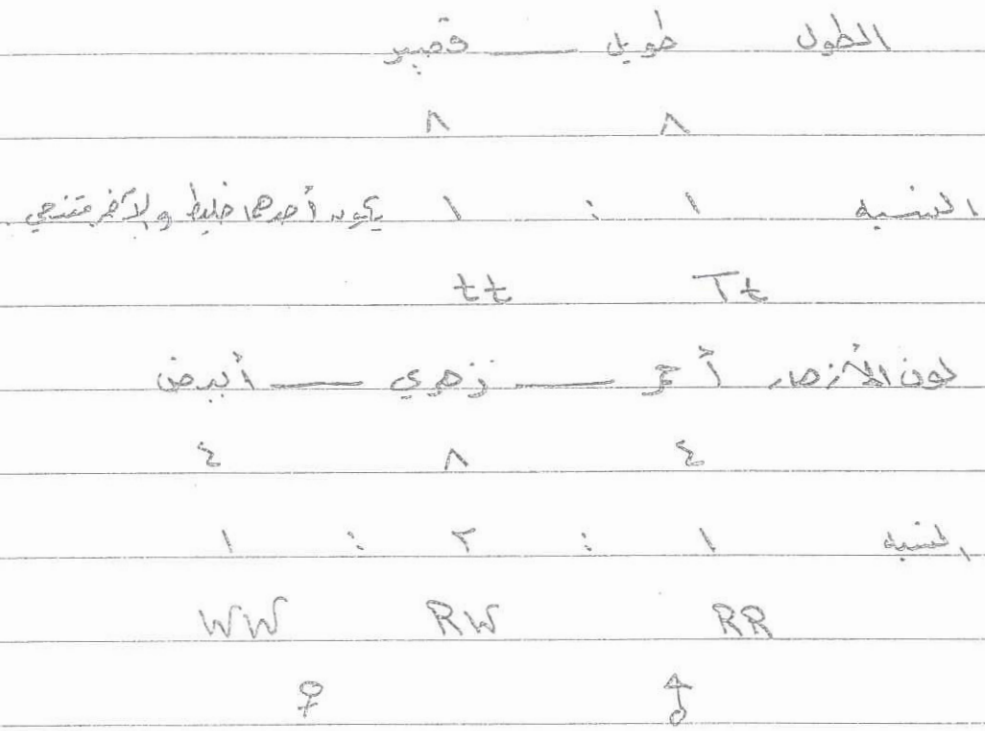 الطول طويل ــــ قصير
٨ ٨
النسبه ١ : ١ يكون أحدهما خليط والآخر متنحي
Tt tt
لون الأزهار أحمر ــــ زهري ــــ أبيض
٤ ٨ ٤
النسبه ١ : ٢ : ١
RR RW WW
♂ ♀